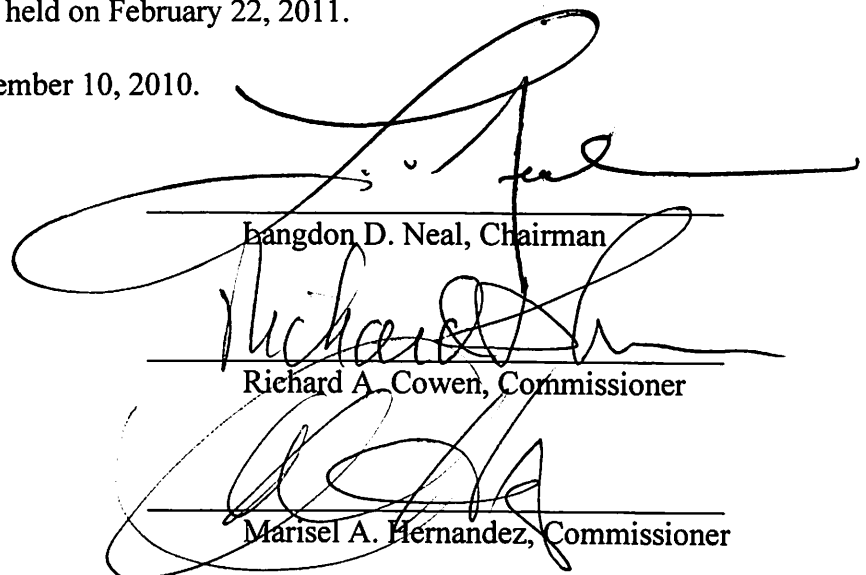 held on February 22, 2011.
ember 10, 2010.
Neal
Langdon D. Neal, Chairman
Richard
Richard A. Cowen, Commissioner
Marisel A. Hernandez, Commissioner